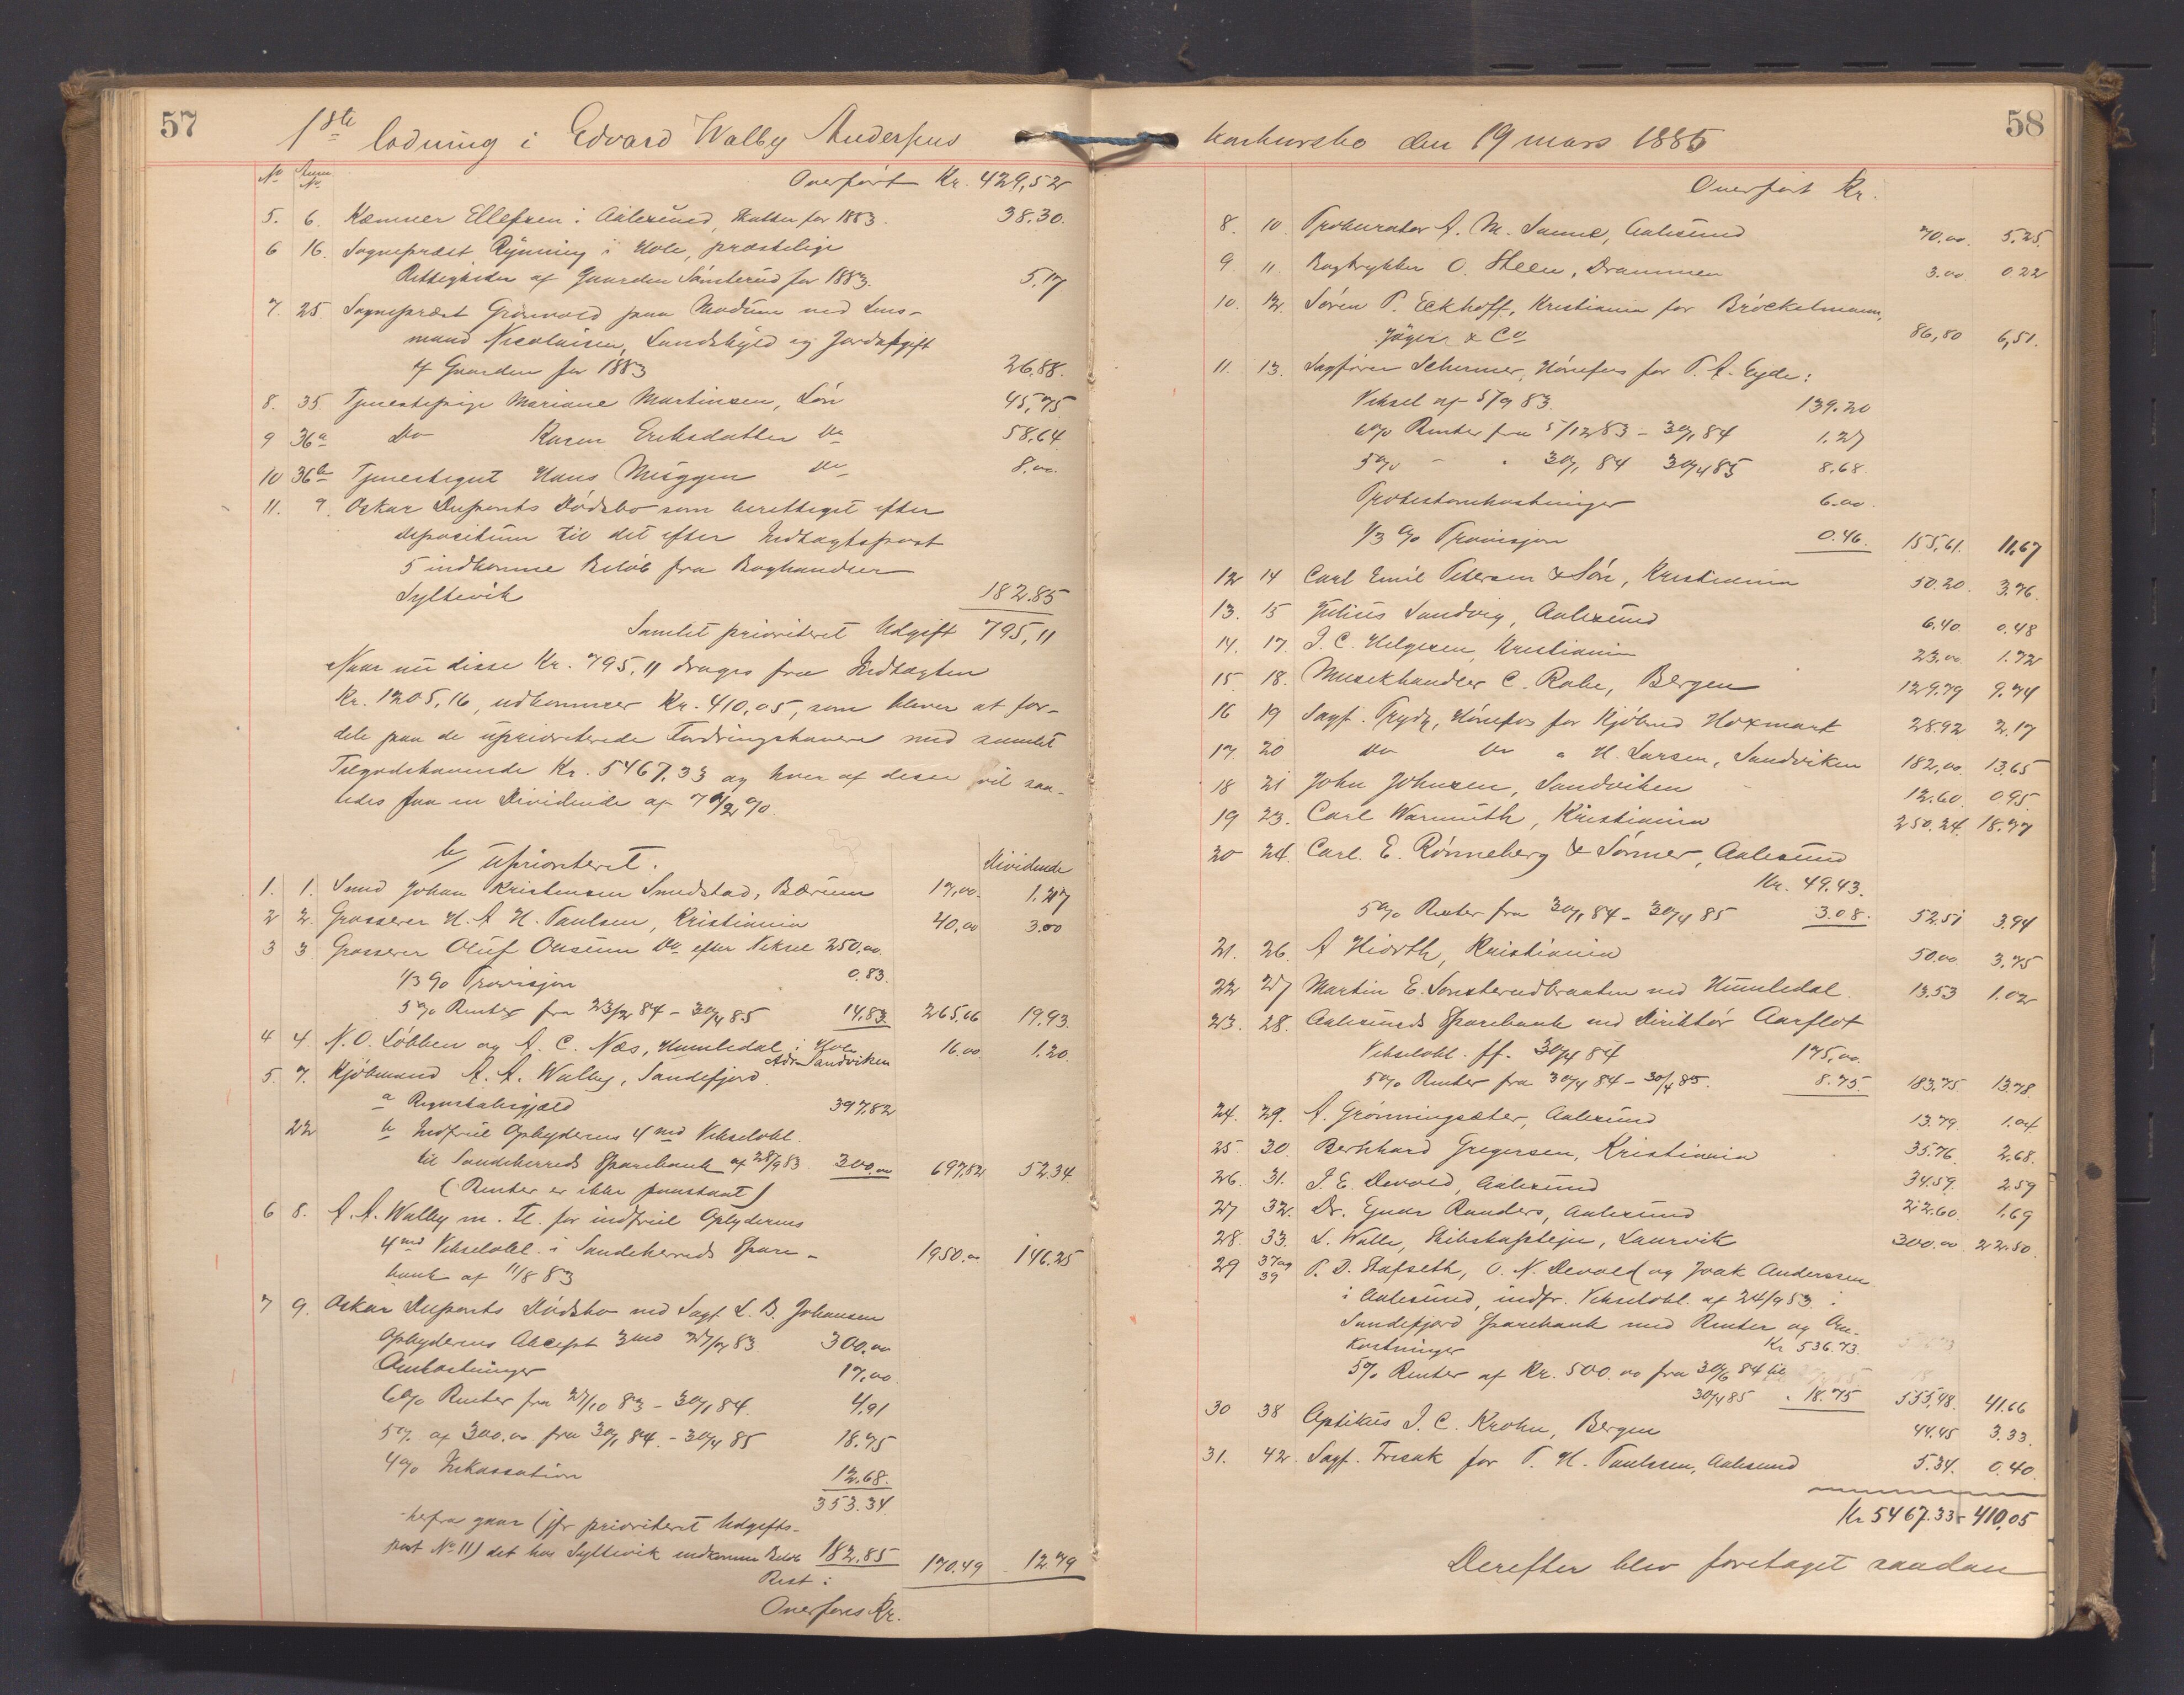 57
1ste lodning i Edvard Walby Andersens
No Anm. No.
Overført Kr. 429,52
5. 6. Kæmner Ellefsen i Aalesund, Skatter for 1883. 38.30.
6 16. Sogneprest Rynning i Hole, prestelige
Rettigheder af Gaarden Sønsterud for 1883. 5,17
7. 25. Sogneprest Grönvold paa Modum ved Lens-
mand Nicolaisen, Landskyld og Jordafgift
af Gaarden for 1883 26.88.
8. 35. Tjenestepige Mariane Martinsen, Løn 45,75
9 36a Do Karen Eriksdatter Do 58,64
10 36b Tjenestegut Hans Muggen Do 8.00.
11. 9. Oskar Duponts Dødsbo som berettiget efter
depositum til det efter Indtægtspost
5 indkomne Beløb fra Boghandler
Syltevik 182.85
Samlet prioriteret Udgift 795,11
Naar nu disse Kr. 795,11 drages fra Indtægten
Kr. 1205,16, udkommer Kr. 410,05, som bliver at for-
dele paa de uprioriterede Fordringshavere med samlet
Tilgodehavende Kr. 5467.33 og hver af disse vil saa-
ledes faa en Dividende af 7 1/2 %.
b/ Uprioriteret.
Dividende
1. 1. Smed Johan Kristensen Smedstad, Bærum 17,00. 1.27
2 2. Grosserer H. A. H. Paulsen, Kristiania 40,00 3.00
3 3 Grosserer Oluf Onsum Do efter Veksel 250,00.
1/3 % Provisjon 0.83.
5 % Renter fra 23/2 84 - 30/4 85 14.83. 265,66 19.93.
4 4. N. O. Løbben og A. C. Næs, Humledal i Hole
Adr. Sandviken 16.00. 1.20.
5. 7. Kjøbmand A. A. Walby, Sandefjord.
a Regnskabsgjæld 397.82
22 b Indfriet Opbyderens 4 md Vekselobl.
til Sandeherreds Sparebank af 28/9 83 300,00 697,82 52.34.
(Renter er ikke paastaaet)
6 8. A. A. Walby m. Fl. for indfriet Opbyderens
4 md Vekselobl. i Sandeherreds Spare-
bank af 11/8 83 1950.00 146.25
7 9. Oskar Duponts Dødsbo ved Sagf. L. B. Johansen
Opbyderens Akcept 3 md 27/7 83 300,00
Omkostninger 17,00.
6 % Renter fra 27/10 83 - 30/1 84. 4,91
5 % af 300.00 fra 30/1 84. - 30/4 85 18.75
4 % Inkassation 12.68.
353.34
herfra gaar (jfr prioriteret Udgifts-
post No 11) det hos Syltevik indkomne Beløb 182.85
Rest: 170.49 12.79
Overføres Kr.
58
Konkursbo den 19 mars 1885
Overført Kr.
8. 10. Prokurator A. M. Sanne, Aalesund 70.00. 5.25.
9 11. Bogtrykker O. Steen, Drammen 3.00 0.22
10. 12. Søren P. Eckhoff, Kristiania for Bröckelmann,
Jäger & Co 86,80 6,51.
11. 13. Sagfører Schermer, Hönefos for P. A. Eyde:
Veksel af 5/9 83. 139.20
6 % Renter fra 5/12 83 - 30/1 84 1.27
5 % - " 30/1 84 30/4 85 8.68.
Protestomkostninger 6.00.
1/3 % Provisjon 0.46. 155,61. 11,67
12 14 Carl Emil Petersen & Søn, Kristiania 50.20. 3.76.
13. 15 Julius Sandvig, Aalesund 6.40. 0.48
14. 17. J. C. Helgesen, Kristiania 23.00. 1.72
15. 18. Musikhandler C. Rabe, Bergen 129.79 9.74
16 19 Sagf. Frydz, Hönefos for Kjöbmd Hoxmark 28.92 2.17
17. 20 Do Do " H. Larsen, Sandviken 182,00. 13.65
18 21 John Johnsen, Sandviken 12.60. 0.95.
19 23. Carl Warmuth, Kristiania 250.24. 18.77
20 24. Carl. E. Rønneberg & Sønner, Aalesund
Kr. 49.43.
5 % Renter fra 30/1 84 - 30/4 85 3.08. 52.51 3.94
21. 26. A Hiorth, Kristiania 50.00. 3.75
22 27 Martin E. Sønsterudbraaten ved Humledal. 13.53 1.02
23. 28. Aalesunds Sparebank ved Direktør Aarflot
Vekselobl. ff. 30/4 84 175,00.
5 % Renter fra 30/4 84 - 30/4 85. 8.75. 183.75 13.78.
24. 29. A. Grønningsæter, Aalesund 13.79. 1.04
25 30. Bernhard Gregersen, Kristiania 35.76. 2.68.
26. 31. J. E. Devold, Aalesund 34.59. 2.59
27 32. Dr. Gunnar Randers, Aalesund 22.60. 1.69
28. 33. L. Wølle, Skibskaptejn, Laurvik 300.00. 22.50.
29 37 og 39 P. D. Stafseth, O. N. Devold og Joak Anderssen
i Aalesund, indfr. Vekselobl. af 24/9 83. i
Sandefjord Sparebank med Renter og Om-
kostninger Kr 536.73.
5 % Renter af Kr. 500.00 fra 30/6 84 til
30/4 85 " 18.75 555,48. 41.66
30 38 Aptiker J. C. Krohn, Bergen 44.45 3.33.
31. 42. Sagf. Fresak for P. H. Paulssen, Aalesund 5.34. 0.40.
Kr 5467.33 - 410,05
Derefter blev foretaget saadan